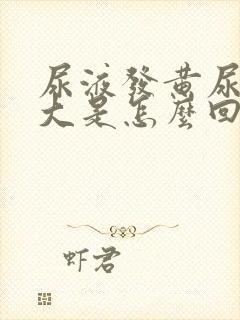 尿液發黃尿
大是怎麼回
虾君